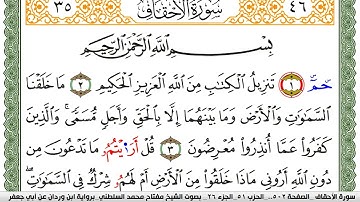 ٣٥ سُورَةُ الأَحْقَافِ ٤٦
بِسْمِ اللَّهِ الرَّحْمَٰنِ الرَّحِيمِ
حمٓ ١ تَنزِيلُ الْكِتَابِ مِنَ اللَّهِ الْعَزِيزِ الْحَكِيمِ ٢ مَا خَلَقْنَا
السَّمَاوَاتِ وَالْأَرْضَ وَمَا بَيْنَهُمَا إِلَّا بِالْحَقِّ وَأَجَلٍ مُّسَمًّى ۚ وَالَّذِينَ
كَفَرُوا عَمَّا أُنذِرُوا مُعْرِضُونَ ٣ قُلْ أَرَٰيْتُمُ مَا تَدْعُونَ مِن
دُونِ اللَّهِ أَرُونِي مَاذَا خَلَقُوا مِنَ الْأَرْضِ أَمْ لَهُمُ شِرْكٌ فِي السَّمَاوَاتِ ۖ
سورة الأحقاف الصفحة ٥٠٢ .. الحزب ٥١ .. الجزء ٢٦ بصوت الشيخ مفتاح محمد السلطني .. برواية ابن وردان عن أبي جعفر